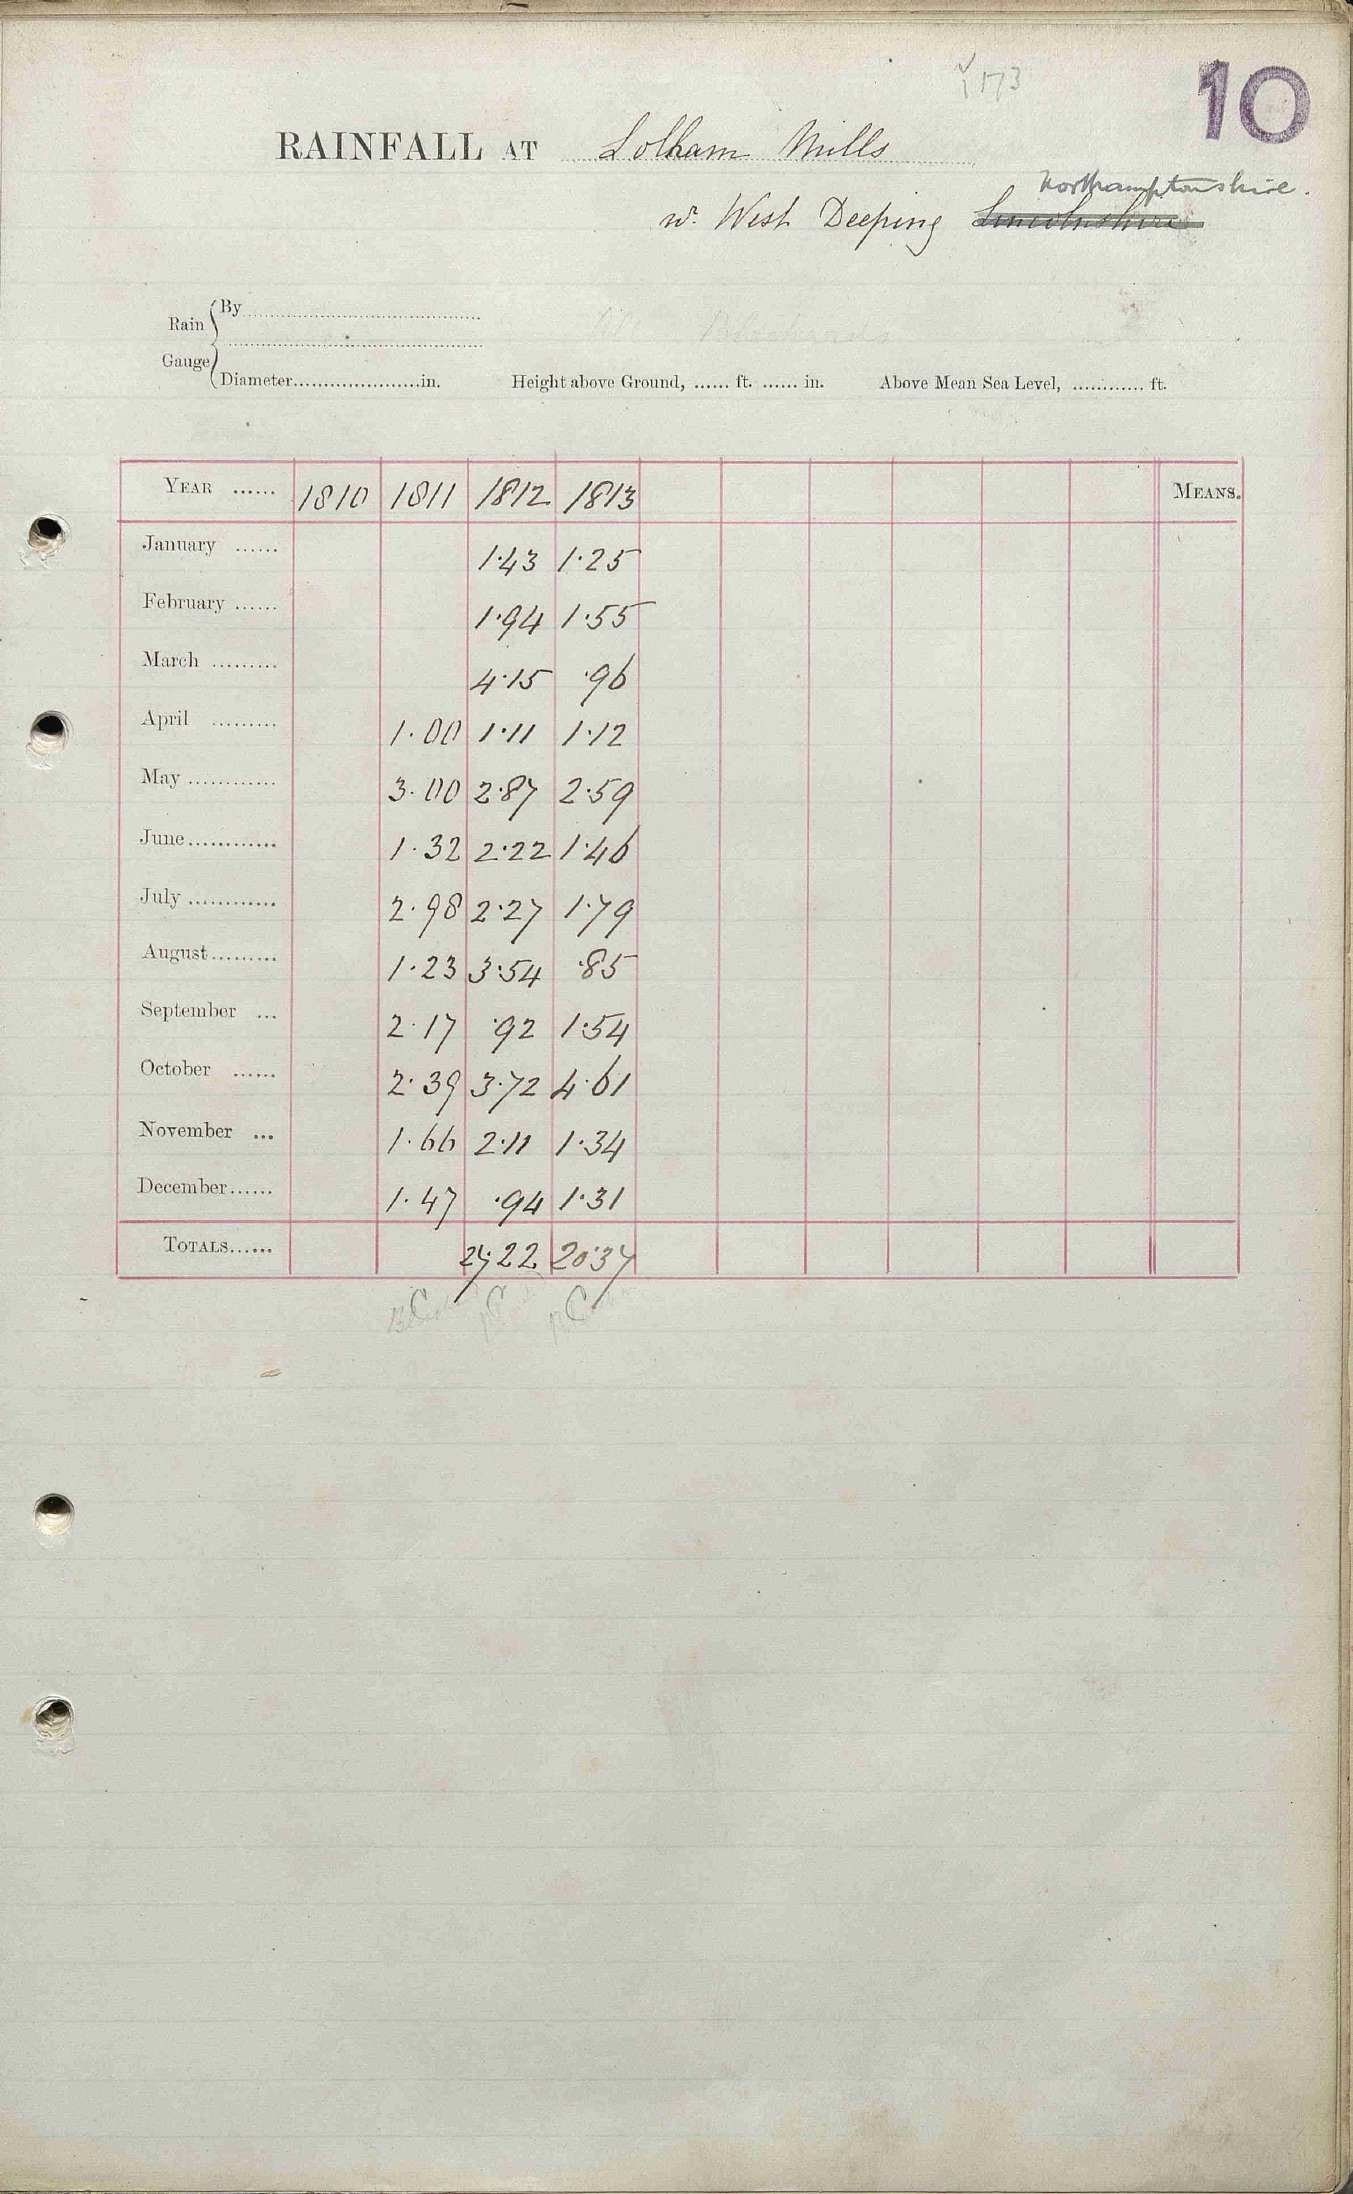 173
10
RAINFALL AT Lolham Mills
Northamptonshire.
nr. West Deeping Lincolnshire
Rain Gauge
By
Diameter in. Height above Ground, ...... ft. ...... in. Above Mean Sea Level, ............ ft.
YEAR ...... 1810 1811 1812 1813 MEANS.
January ...... 1.43 1.25
February ...... 1.94 1.55
March ......... 4.15 .96
April ......... 1.00 1.11 1.12
May ............ 3.00 2.87 2.59
June ............ 1.32 2.22 1.46
July ............ 2.98 2.27 1.79
August ......... 1.23 3.54 .85
September ... 2.17 .92 1.54
October ...... 2.39 3.72 4.61
November ... 1.66 2.11 1.34
December ...... 1.47 .94 1.31
TOTALS ...... 27.22 20.37